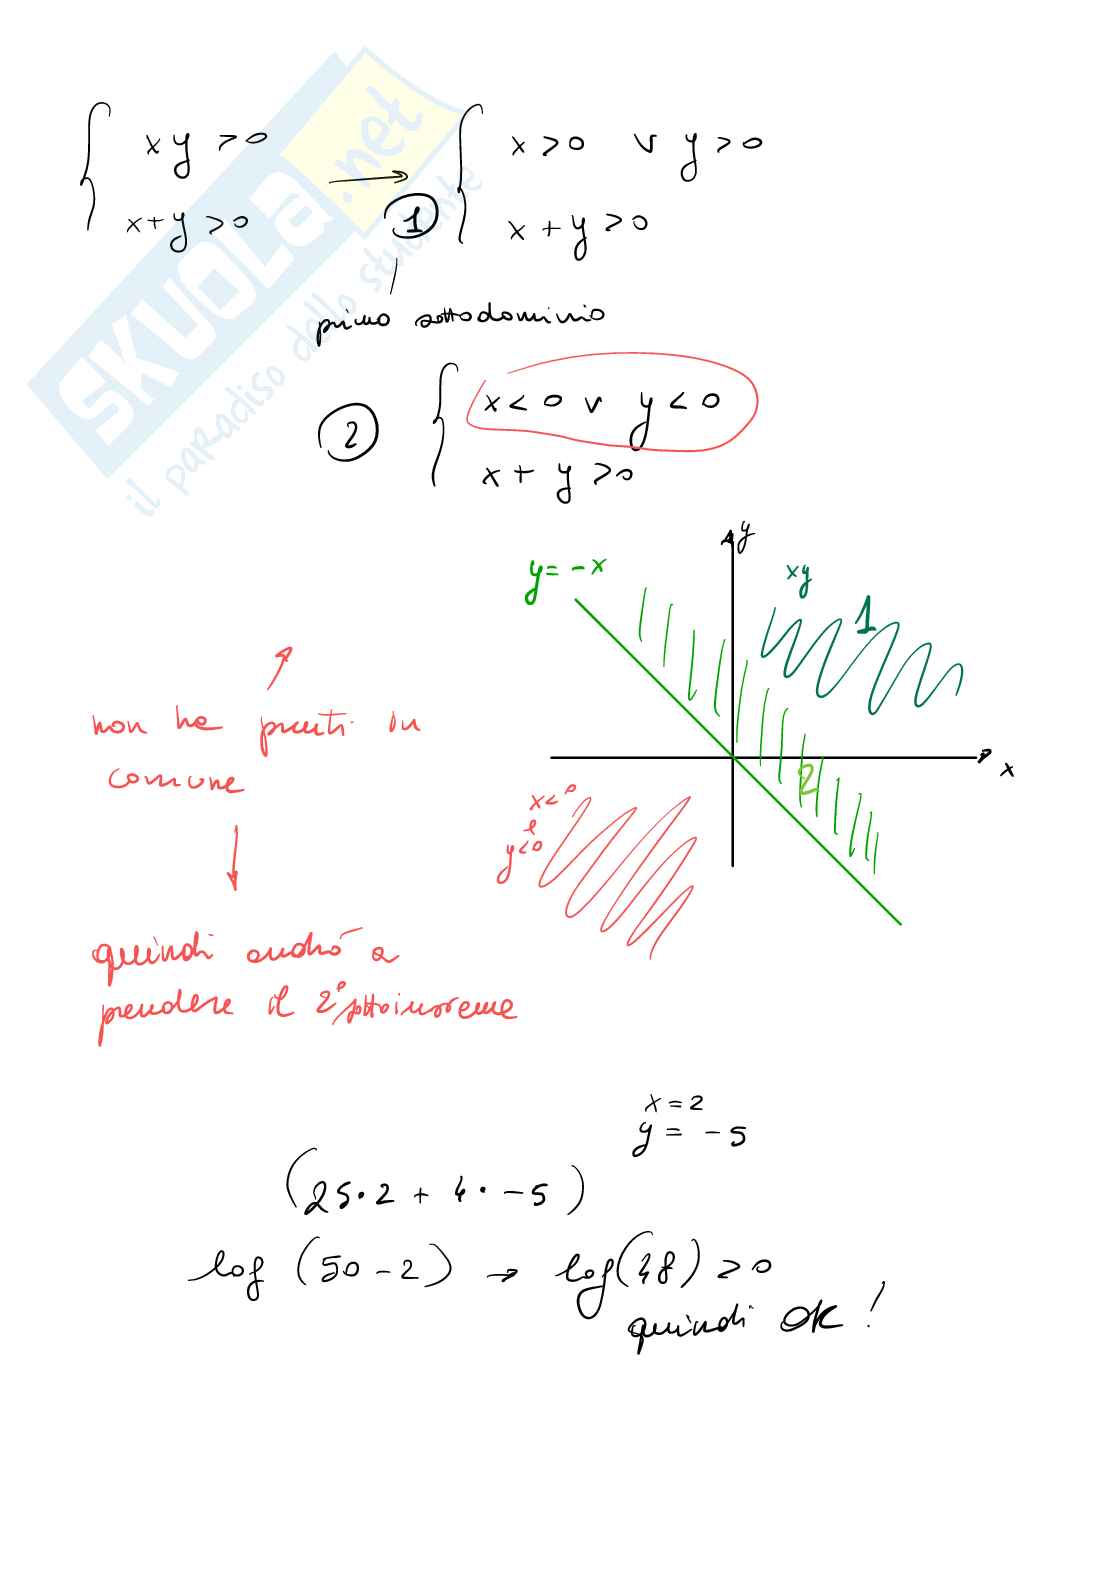 xy > 0
x + y > 0
→
1
x > 0 v y > 0
x + y > 0
primo sottodominio
2
x < 0 v y < 0
x + y > 0
y
y = - x
xy
1
x
2
x < 0
e
y < 0
non ha punti in
comune
quindi andrò a
prendere il 2° sottoinsieme
x = 2
y = - 5
(25 · 2 + 4 · - 5)
log (50 - 2) → log (48) > 0
quindi ok!
SKUOLA.net
il paradiso dello studente